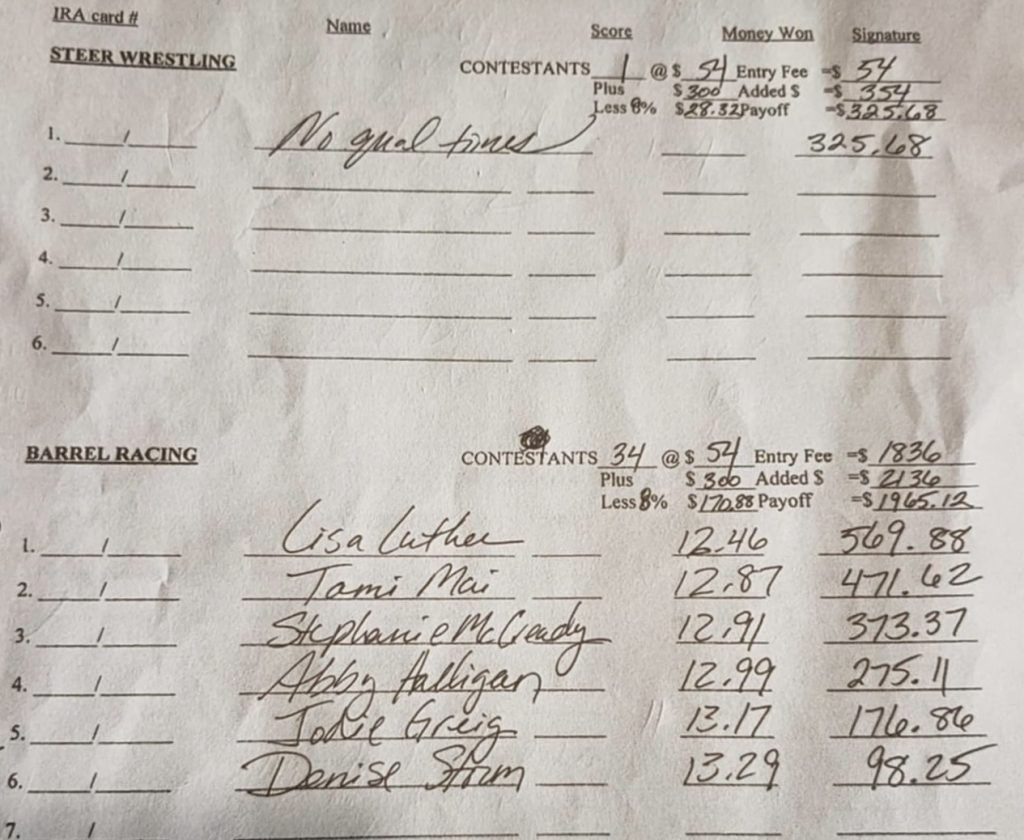 IRA card # Name Score Money Won Signature
STEER WRESTLING CONTESTANTS 1 @ $ 54 Entry Fee =$ 54
Plus $ 300 Added $ =$ 354
Less 8% $28.32 Payoff =$325.68
1. / No qual times 325.68
2. /
3. /
4. /
5. /
6. /
BARREL RACING CONTESTANTS 34 @ $ 54 Entry Fee =$ 1836
Plus $ 300 Added $ =$ 2136
Less 8% $170.88 Payoff =$1965.12
1. / Lisa Luther 12.46 569.88
2. / Tami Mai 12.87 471.62
3. / Stephanie McCready 12.91 373.37
4. / Abby Halligan 12.99 275.11
5. / Jodie Greig 13.17 176.86
6. / Denise Strum 13.29 98.25
7. /